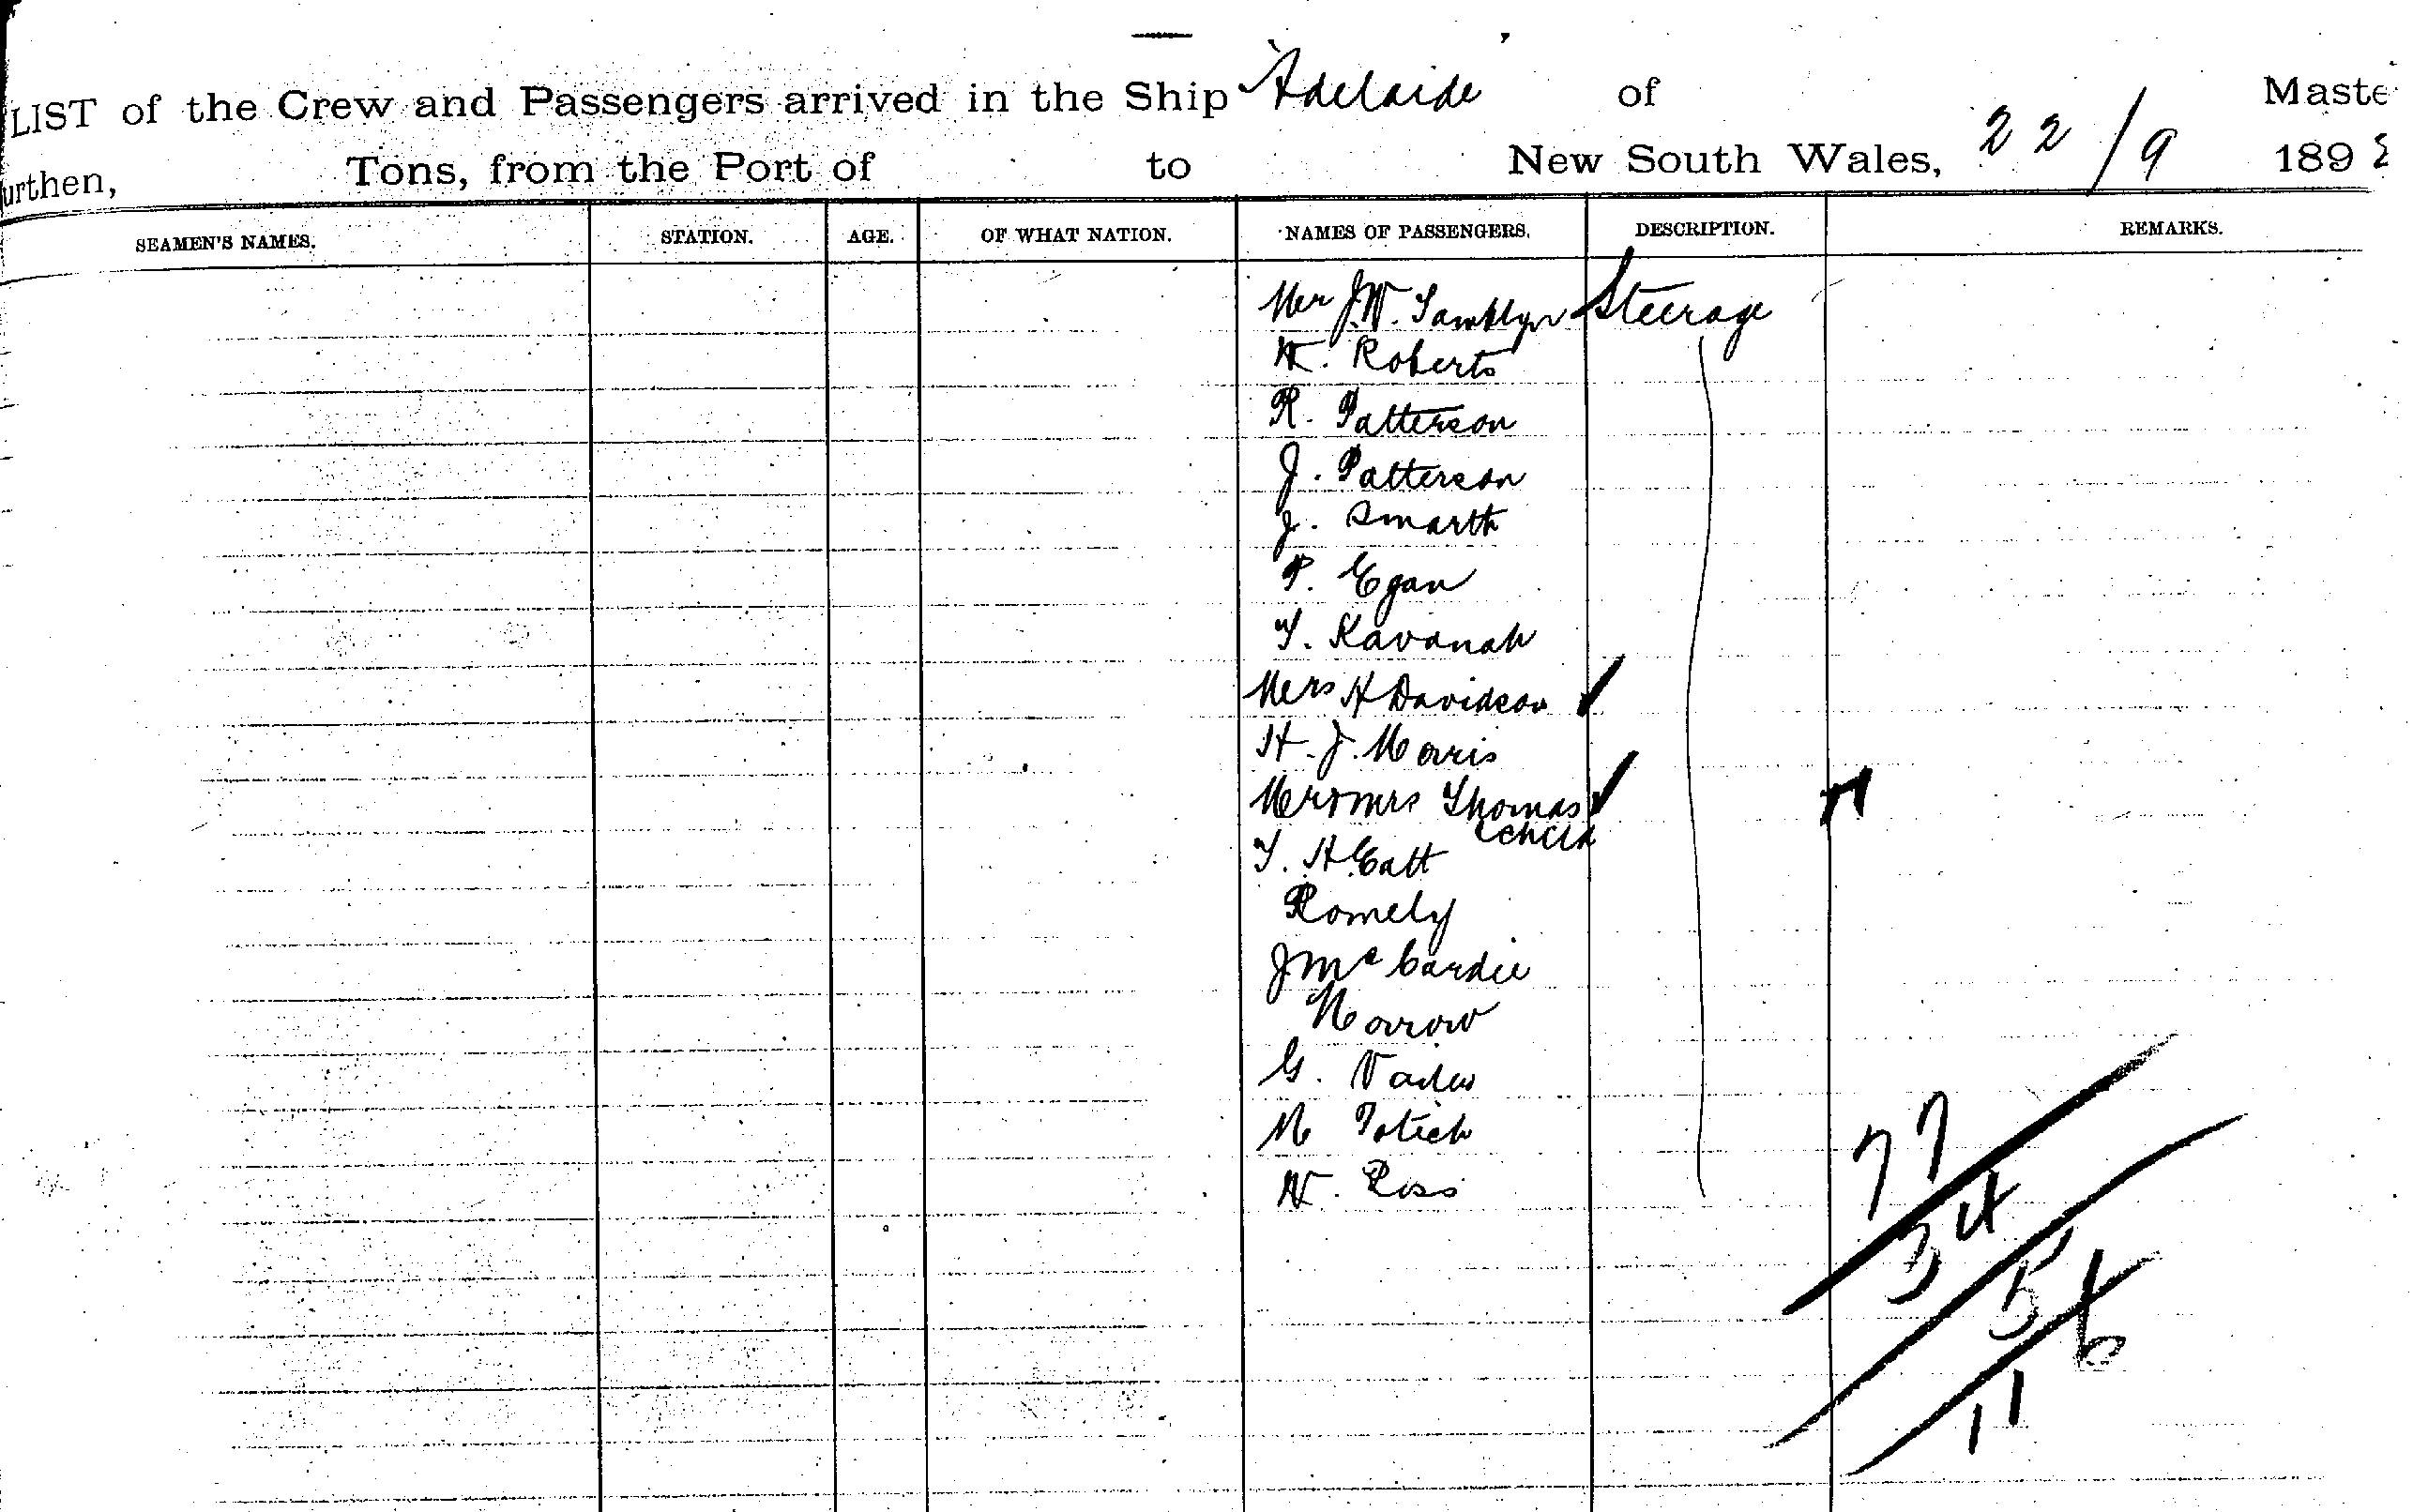 LIST of the Crew and Passengers arrived in the Ship Adelaide of Maste
urthen, Tons, from the Port of to New South Wales, 22/9 1892
SEAMEN'S NAMES. STATION. AGE. OF WHAT NATION. NAMES OF PASSENGERS. DESCRIPTION. REMARKS.
Mr J.W. Tamblyn Steerage
W. Roberts
R. Patterson
J. Patterson
J. Smarth
P. Egan
T. Kavanah
Mrs H Davidson
H. J. Morris
Mr & Mrs Thomas
& child
T. H Catt
Romely
J McCardie
Morrow
G.
M
W. Ross
77
34
5
6
11